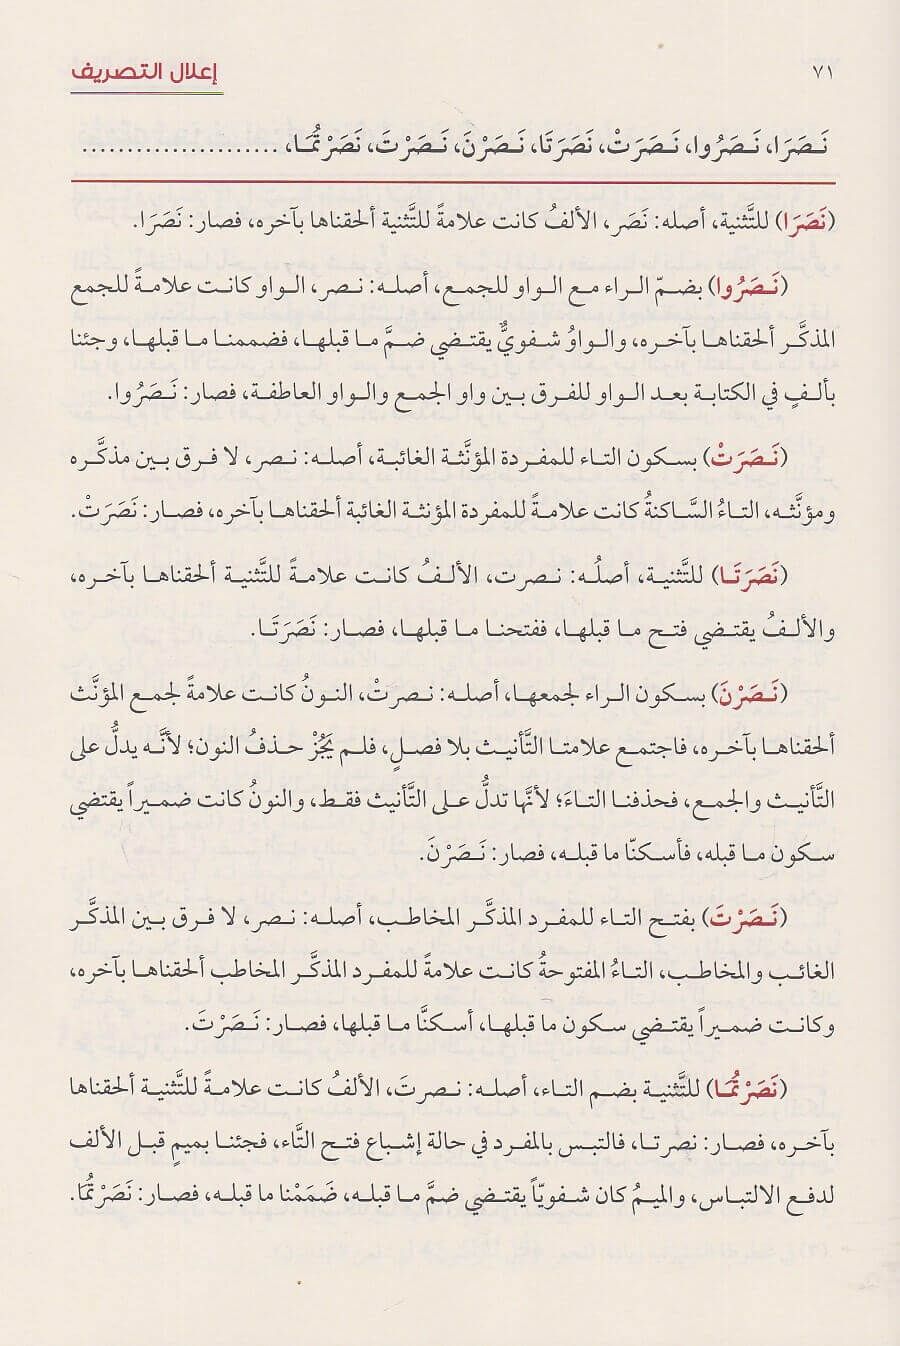 ٧١
إعلال التصريف
نَـصَرَا، نَـصَرُوا، نَـصَرَتْ، نَصَرَتَا، نَـصَرْنَ، نَـصَرْتَ، نَصَرْتُمَـا، ......................
(نَصَرَا) للتَّثنية، أصله: نَصَر، الألفُ كانت علامةً للتَّثنية ألحقناها بآخره، فصار: نَصَرَا.
(نَـصَرُوا) بضمّ الراء مع الـواو للجمع، أصلـه: نـصر، الـواو كانـت علامـةً للجمع
المذكَّر ألحقناها بآخره، والـواوُ شـفويٌّ يقتـضي ضمَّ مـا قبلهـا، فضممنـا مـا قبلهـا، وجئنا
بألـفٍ في الكتابـة بعـد الـواو للفـرق بـين واو الجمع والـواو العاطفـة، فصار: نَـصَرُوا.
(نَـصَرَتْ) بسكون التـاء للمفـردة المؤنَّثـة الغائبـة، أصلـه: نـصر، لا فـرق بـين مذكَّـره
ومؤنَّثـه، التـاءُ السَّـاكنةُ كانـت علامـةً للمفردة المؤنثـة الغائبة ألحقناها بآخره، فصار: نَصَرَتْ.
(نَصَرَتَـا) للتَّثنيـة، أصلُـه: نـصرت، الألـفُ كانـت علامـةً للتَّثنيـة ألحقناهـا بآخـره،
والألـفُ يقتـضي فتـح مـا قبلهـا، ففتحنـا مـا قبلهـا، فصـار: نَصَرَتَـا.
(نَـصَرْنَ) بسـكون الـراء لجمعهـا، أصلـه: نـصرتْ، النـونُ كانـت علامـةً لجمع المؤنَّث
ألحقناهـا بآخـره، فاجتمـع علامتـا التَّأنيـث بلا فصـلٍ، فلـم يَجُزْ حـذفُ النون؛ لأنَّـه يدلُّ على
التَّأنيـث والجمـع، فحذفنـا التـاءَ؛ لأنَّهـا تـدلُّ عـلى التَّأنيـث فقـط، والنونُ كانـت ضميراً يقتضي
سـكون مـا قبلـه، فأسـكنّا مـا قبلـه، فصـار: نَـصَرْنَ.
(نَـصَرْتَ) بفتـح التـاء للمفـرد المذكَّـر المخاطـب، أصلـه: نـصر، لا فـرق بـين المذكَّـر
الغائـب والمخاطـب، التـاءُ المفتوحـةُ كانـت علامـةً للمفـرد المذكَّـر المخاطـب ألحقناهـا بآخـره،
وكانـت ضميـراً يقتـضي سـكون مـا قبلهـا، أسـكنَّا مـا قبلها، فصـار: نَـصَرْتَ.
(نَصَرْتُمَـا) للتَّثنيـة بضـم التـاء، أصلـه: نـصرتَ، الألـفُ كانـت علامـةً للتَّثنيـة ألحقناهـا
بآخـره، فصـار: نصرتـا، فالتبس بالمفـرد في حالـة إشـباع فتح التَّاء، فجئنـا بميمٍ قبـل الألف
لدفـع الالتبـاس، والميـمُ كان شـفويّاً يقتـضي ضمَّ مـا قبلـه، ضَمَمْنا ما قبله، فصار: نَصَرْتُمَا.